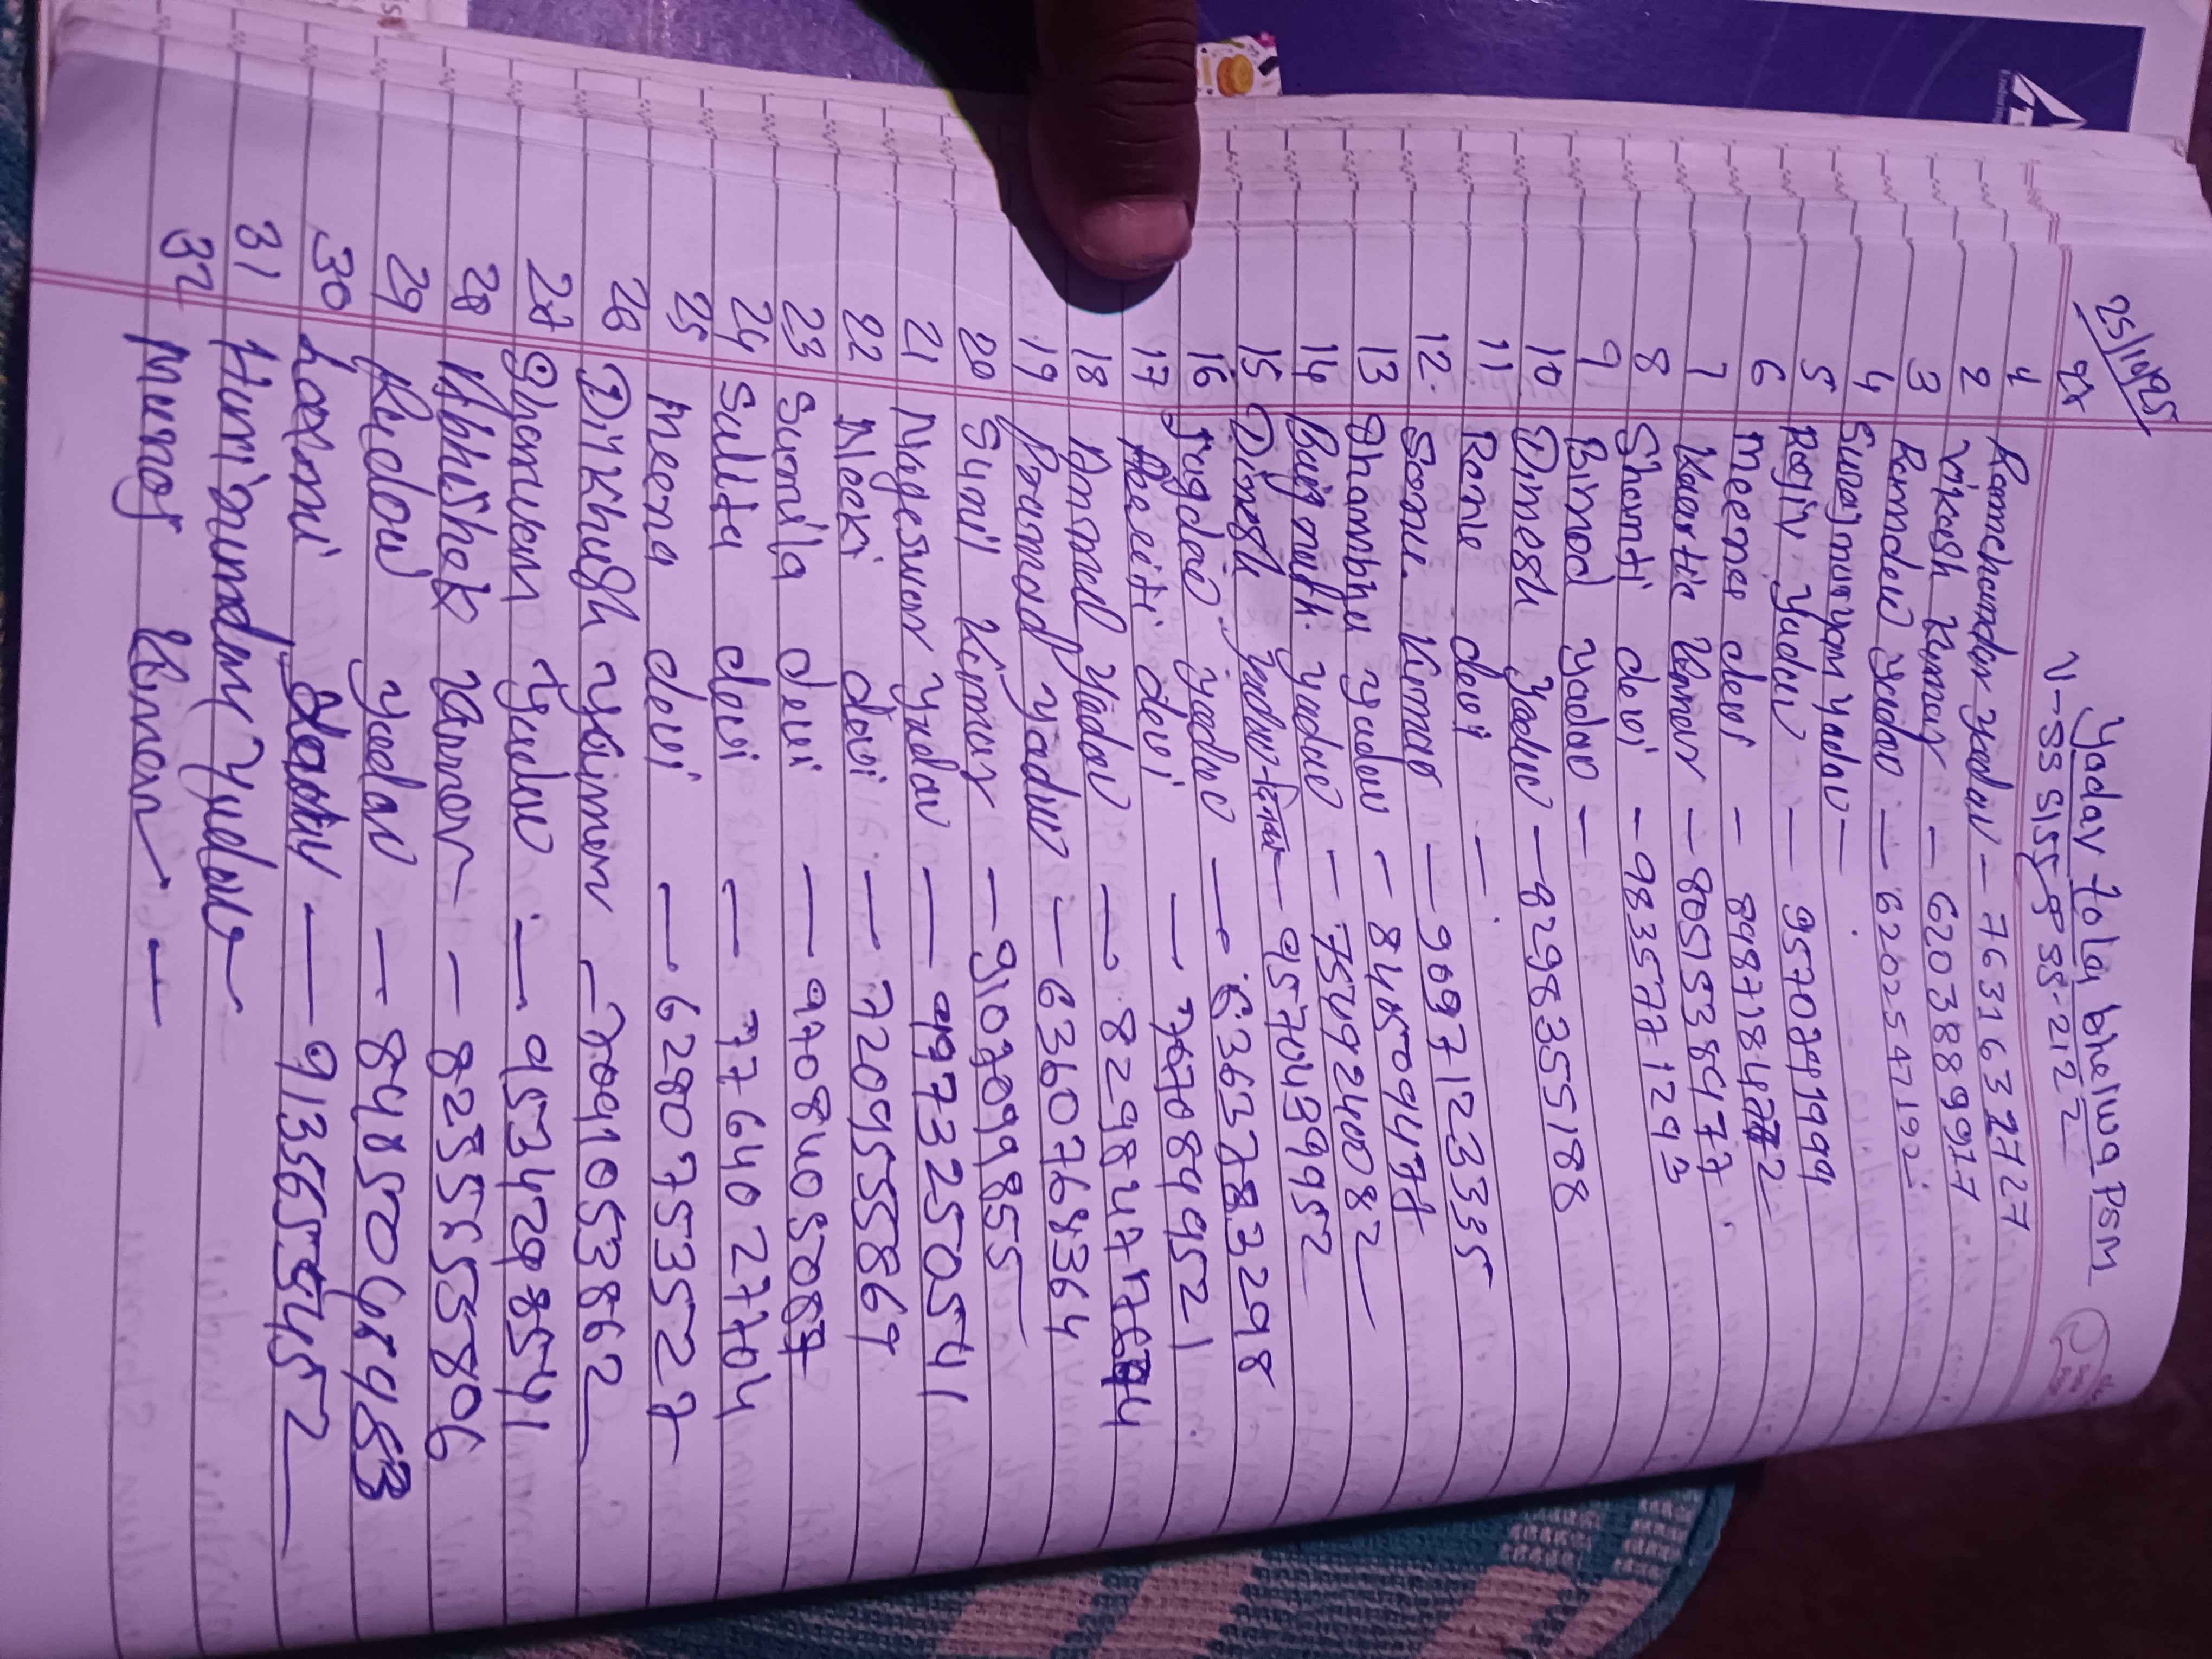 25/10/25
Yadav tola bhelwa PSM
2x N-SS SISS
1 Ramchandar yadav - 7631632727
2 Vikash Kumar - 6203889977
3 Ramdev yadav - 6202547192
4 Surajnarayan yadav -
5 Rajiv yadav - 9570241999
6 Meena devi -
7 Kaartic Kumar - 8051538477
8 Shanti devi - 9835771293
9 Binod yadav -
10 Dinesh yadav - 8298355188
11 Rani devi -
12. Sonu. Kumar - 9097123335
13 Shambhu yadav - 8485094478
14 Baijnath. yadav - 7549240082
15 Dinesh yadav - 9570439952
16 Jagdev yadav - 6363783298
17 devi - 7670849521
18 yadav -
19 Pramod yadav - 6360768364
20 Sunil Kumar - 9102099855
21 Nageswar yadav - 9973250541
22 Neeki devi - 7209555869
23 Sunila devi - 9708405087
24 Sulita devi - 7764027704
25 Meena devi - 6280753527
26 Dilkhush Kumar - 7091053862
27 yadav - 9534298541
28 Abhishek Kumar - 8255555806
29 yadav -
30 Laxmi yadav - 9135655452
31 yadav -
32 Kumar -